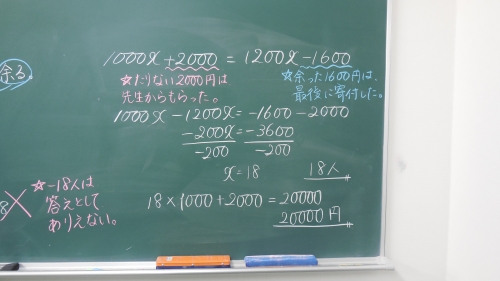 余る。
1000x+2000=1200x-1600
☆たりない2000円は
先生からもらった。
☆余った1600円は、
最後に寄付した。
1000x-1200x=-1600-2000
-200x=-3600
-200 -200
x=18
18人
8
☆-18人は
答えとして
ありえない。
18×1000+2000=20000
20000円